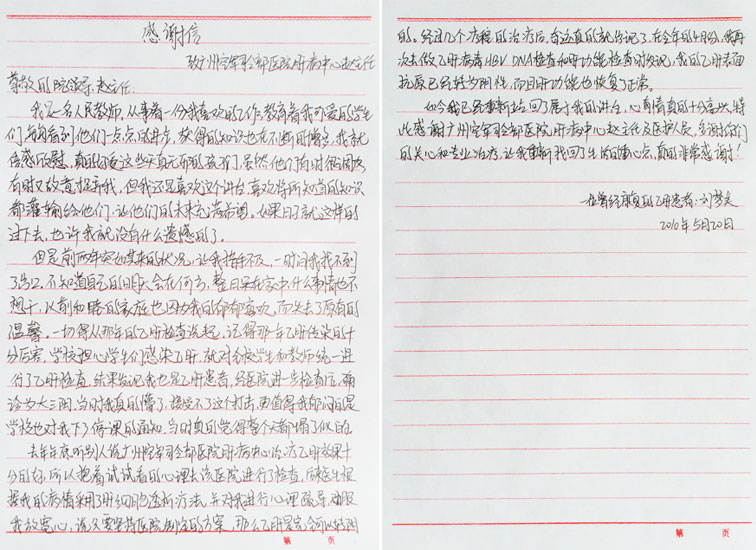 感谢信
致广州空军司令部医院肝病中心赵主任
尊敬的院领导、赵主任:
我是一名人民教师,从事着一份我喜欢的工作,教育着我可爱的学生
们,每每看到他们一点点的进步,获得的知识也在不断的增多,我就
倍感欣慰,真的很爱这些天真无邪的孩子们,虽然他们有时很调皮
有时又故意捉弄我,但我还是喜欢这个讲台,喜欢将所知道的知识
都灌输给他们,让他们的未来充满希望。如果日子就这样的
过下去,也许我就没有什么遗憾的了。
但是前两年突如其来的状况,让我措手不及,一时间我找不到
了出口,不知道自己的明天会在何方,整日呆在家中什么事情也不
想干,从前和睦的家庭也因为我的郁郁寡欢,而失去了原有的
温馨。一切得从那年的乙肝检查说起,记得那一年乙肝传染的十
分厉害,学校担心学生们感染乙肝,就对全校学生和教师统一进
行了乙肝检查,结果发现我也是乙肝患者,经医院进一步检查后,确
诊为大三阳,当时我真的懵了,接受不了这个打击,更值得我郁闷的是
学校也对我下了停课的通知,当时真的觉得整个天都塌了似的。
去年年底听别人说广州空军司令部医院肝病中心治疗乙肝效果十
分的好,所以抱着试试看的心理去该医院进行了检查,医生根
据我的病情采用了肝细胞透析疗法,并对我进行心理疏导,劝服
我放宽心,说只要坚持医院制定的方案,那么乙肝是完全可以治愈
的。经过几个疗程的治疗后,奇迹真的就出现了,在今年的4月份,我再
次去做乙肝病毒HBV-DNA检查和肝功能检查时发现,我的乙肝表面
抗原已经转为阴性,而且肝功能也恢复了正常。
如今我已经重新站回了属于我的讲台,心有情真的十分喜悦,特
此感谢广州空军司令部医院肝病中心赵主任及医护人员,多谢你们
的关心和专业治疗,让我重新找回了生活的重心点,真的非常感谢!
一位曾经康复的乙肝患者:刘梦
2010年5月20日
第 页
第 页